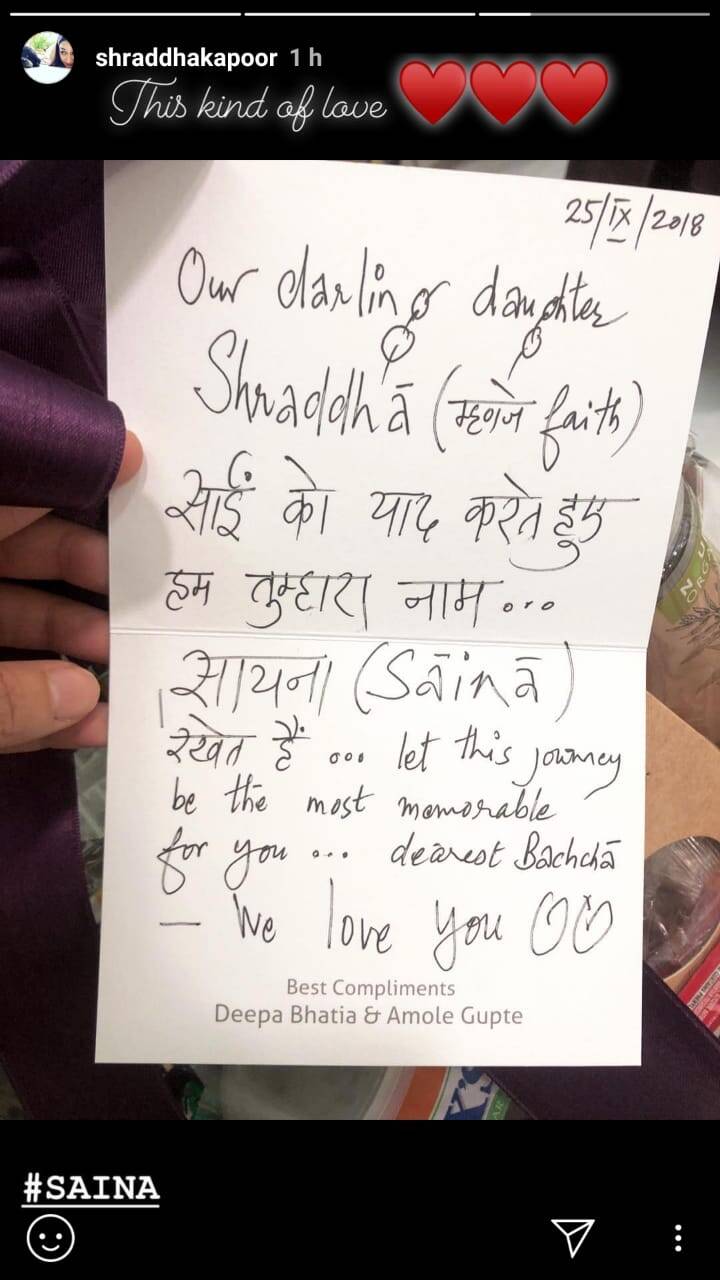 shraddhakapoor 1 h
This kind of love ❤️❤️❤️
25/IX/2018
Our darling daughter
Shraddhā (म्हणजे faith)
साईं को याद करते हुए
हम तुम्हारा नाम...
सायना (Sāinā)
रखते हैं ... let this journey
be the most memorable
for you ... dearest Bachchā
— We love you ♡♡
Best Compliments
Deepa Bhatia & Amole Gupte
#SAINA